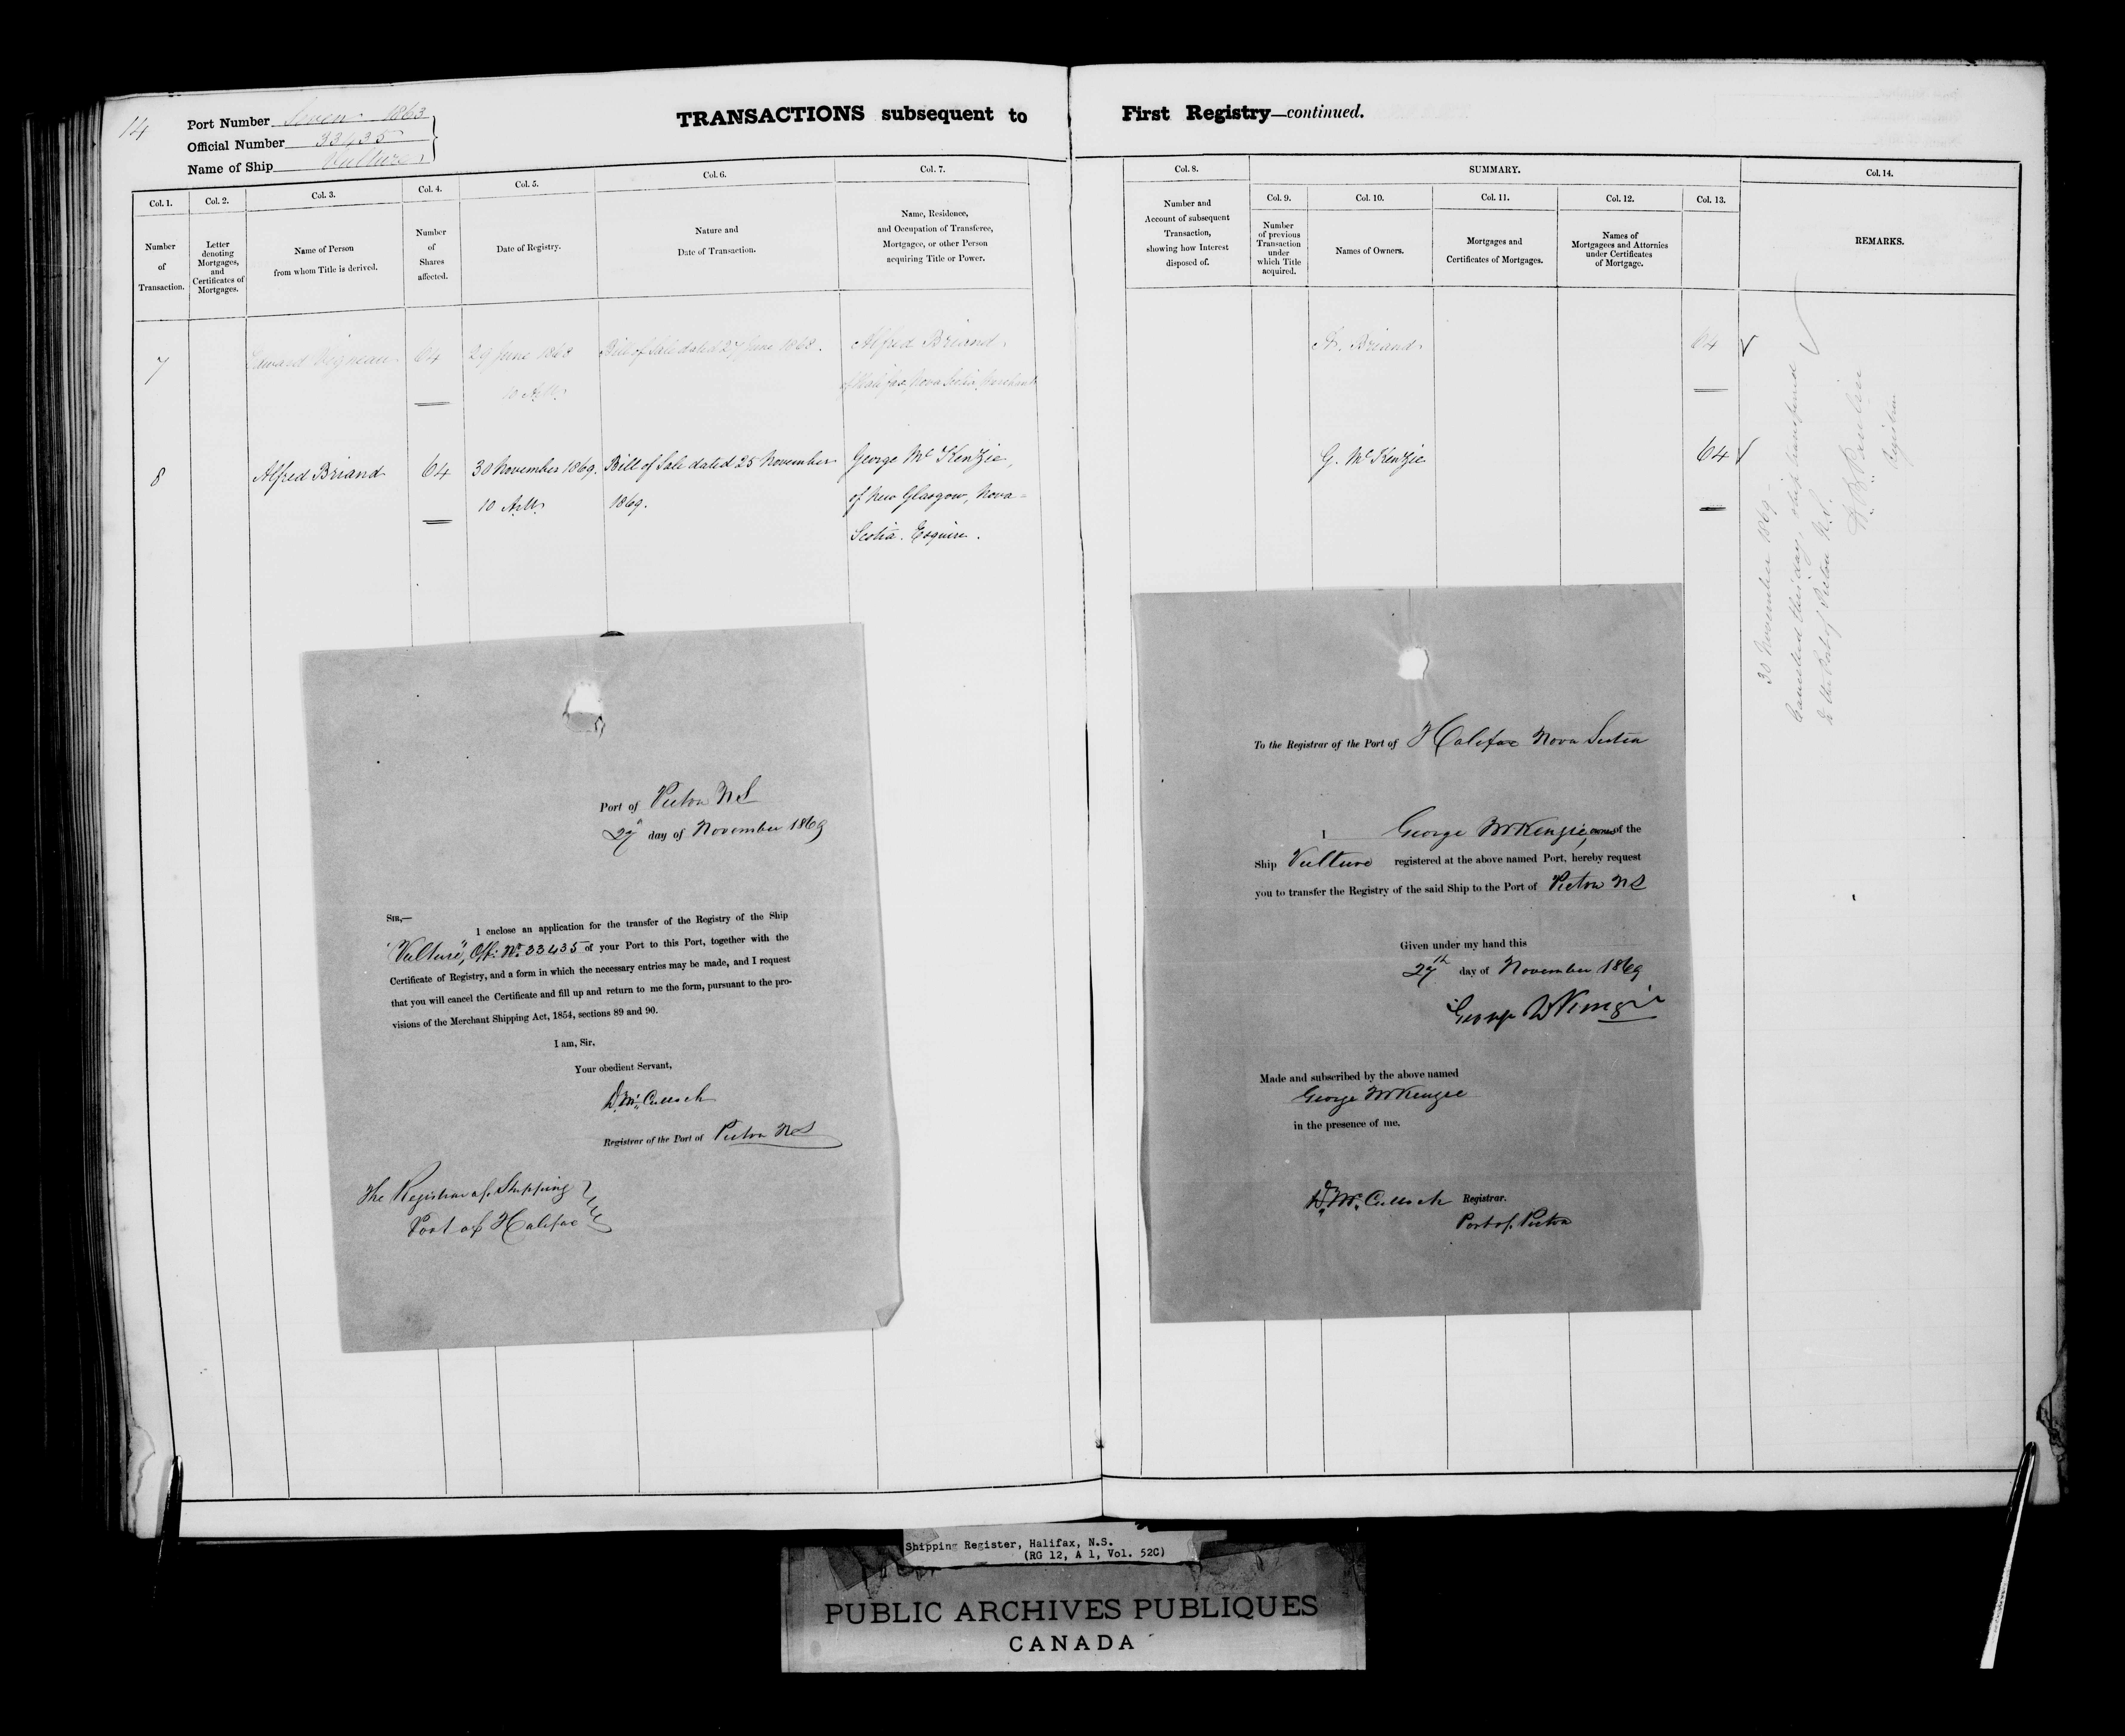 14
Port Number Seven 1863
Official Number 33435
Name of Ship Vulture
TRANSACTIONS subsequent to
First Registry—continued.
Col. 1.
Number
of
Transaction.
Col. 2.
Letter
denoting
Mortgages,
and
Certificates of
Mortgages.
Col. 3.
Name of Person
from whom Title is derived.
Col. 4.
Number
of
Shares
affected.
Col. 5.
Date of Registry.
Col. 6.
Nature and
Date of Transaction.
Col. 7.
Name, Residence,
and Occupation of Transferee,
Mortgagee, or other Person
acquiring Title or Power.
Col. 8.
Number and
Account of subsequent
Transaction,
showing how Interest
disposed of.
SUMMARY.
Col. 9.
Number
of previous
Transaction
under
which Title
acquired.
Col. 10.
Names of Owners.
Col. 11.
Mortgages and
Certificates of Mortgages.
Col. 12.
Names of
Mortgagees and Attornies
under Certificates
of Mortgage.
Col. 13.
Col. 14.
REMARKS.
7
Edward Vigneau
64
29 June 1868
10 A.M.
Bill of Sale dated 27 June 1868.
Alfred Briand
of Halifax, Nova Scotia, Merchant
A. Briand
64
8
Alfred Briand
64
30 November 1869.
10 A.M.
Bill of Sale dated 25 November
1869.
George McKenzie,
of New Glasgow, Nova
Scotia. Esquire.
G. McKenzie
64
30 November 1869
Cancelled this day, ship transferred
to the Port of Pictou N.S.
Registrar
Port of Pictou N S
27th day of November 1869
SIR,—
I enclose an application for the transfer of the Registry of the Ship
"Vulture", Off: No. 33435 of your Port to this Port, together with the
Certificate of Registry, and a form in which the necessary entries may be made, and I request
that you will cancel the Certificate and fill up and return to me the form, pursuant to the pro-
visions of the Merchant Shipping Act, 1854, sections 89 and 90.
I am, Sir,
Your obedient Servant,
D. McCulloch
Registrar of the Port of Pictou N S
The Registrar of Shipping
Port of Halifax
To the Registrar of the Port of Halifax Nova Scotia
I George McKenzie, owner of the
Ship Vulture registered at the above named Port, hereby request
you to transfer the Registry of the said Ship to the Port of Pictou N S
Given under my hand this
27th day of November 1869
George McKenzie
Made and subscribed by the above named
George McKenzie
in the presence of me,
D. McCulloch Registrar.
Port of Pictou
Shipping Register, Halifax, N.S.
(RG 12, A 1, Vol. 52C)
PUBLIC ARCHIVES PUBLIQUES
CANADA